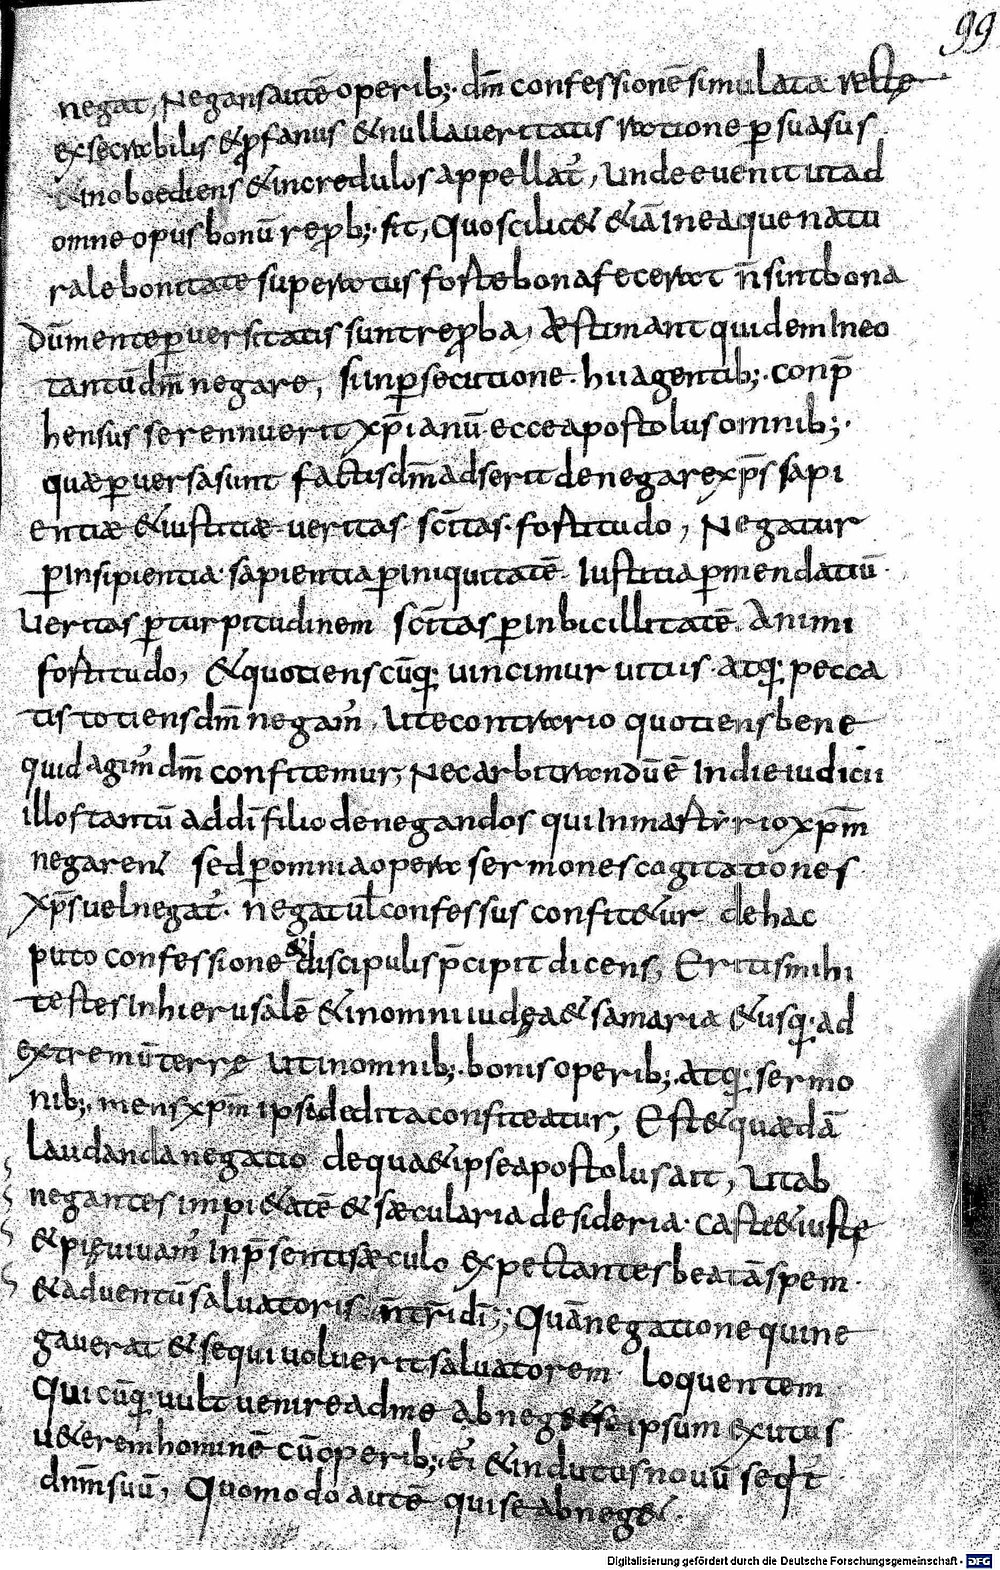 99
negat, Negans autē operib; dm̄ confessionē simulata recte
exsecrabilis & ꝓfanus & nulla ueritatis ratione ꝑsuasus
& inoboediens & incredulos appellat᷑, Unde euenit ut ad
omne opus bonū reꝓb; sit, Quo scilic& &iā in ea que natu
rale bonitate superatus forte bona fecerat n̄ sint bona
Dū mente ꝑuersitatis sunt reꝓba, Æstimant quidem in eo
tantū dm̄ negare, si in ꝑsecutione hii agentib; conp̄
hensus se rennuerit xp̄ianū ecce apostolus omnib;
quæ ꝑuersa sunt factis dm̄ adserit denegare xp̄s sapi
entiæ & iustitiæ ueritas sc̄itas fortitudo, Negatur
ꝑ insipientia sapientia ꝑ iniquitatē Iustitia ꝑ mendatiū
Ueritas ꝑ turpitudinem sc̄itas ꝑ inbicillitatē Animi
fortitudo, & quotienscūq; uincimur uitiis atq; pecca
tis totiens dm̄ negam᷑, Ut e contrario quotiens bene
quid agim᷑ dm̄ confitemur, Nec arbitrandū ē In die iudicii
illos tantū a ddī filio denegandos qui In martyrio xp̄m
negaren᷑ sed ꝑ omnia opera sermones cogitationes
xp̄s uel negat᷑ negat uł confessus confit&ur de hac
puto confessione & discipulis p̄cipit dicens, Eritis mihi
testes In hierusalē & in omni iudęa & samaria & usq; ad
extremū terrę Ut in omnib; bonis operib; atq; sermo
nib; mens xp̄m ipsi dedita confiteatur, Est & quædā
laudanda negatio de qua & ipse apostolus ait, Ut ab
negantes impi&atē & sæcularia desideria Cast& & iustę
& pię uiuam᷑ In p̄senti sæculo expectantes beatā spem
& aduentū saluatoris n̄tr̄i dī;, Quā negatione qui ne
gauerat & sequi uoluerit saluatorem loquentem
Qui cūq; uult uenire ad me Abneg& se ipsum exutus
u&erem hominē cū operib; ei & indutus nouū seqt᷑
dnm̄ suū, Quomodo autē qui se abneg&
Digitalisierung gefördert durch die Deutsche Forschungsgemeinschaft - DFG